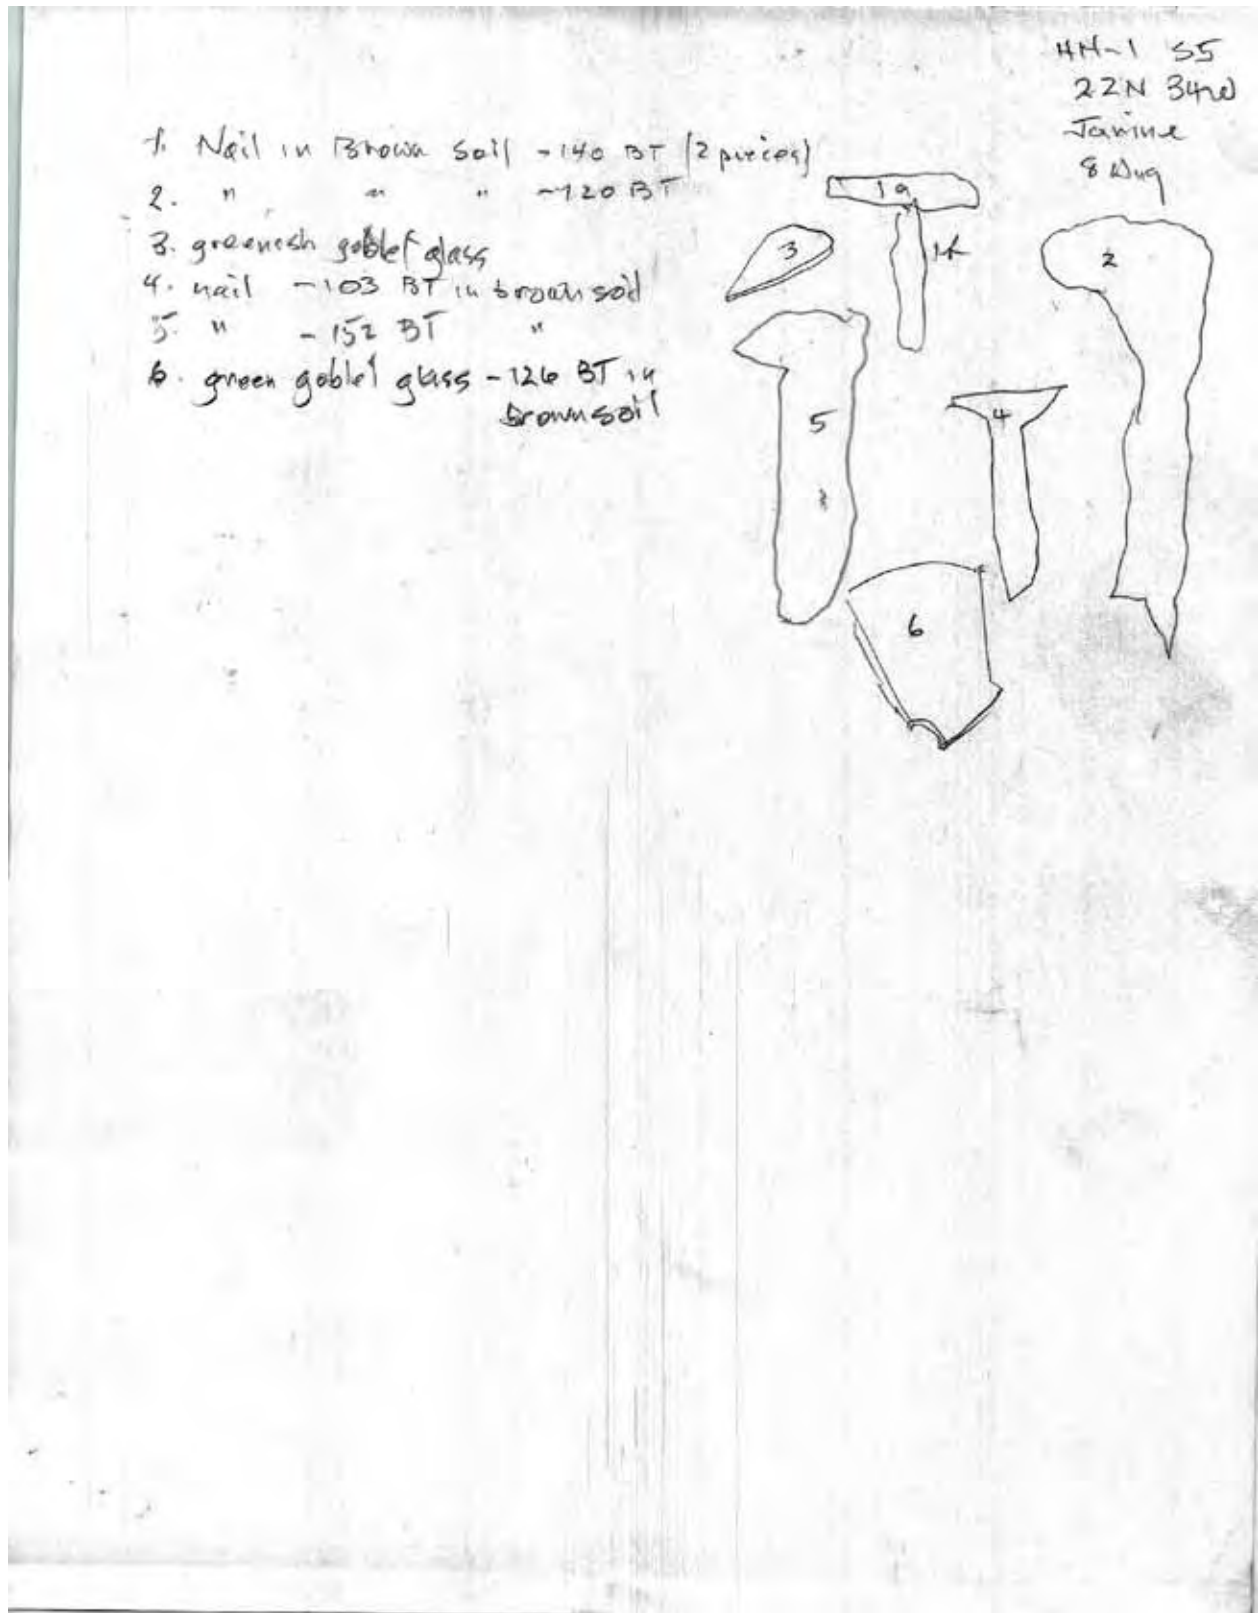 HH-1 S5
22N 34W
Janine
8 Aug
1. Nail in Brown Soil -140 BT (2 pieces)
2. " " " -120 BT
3. greenesh goblet glass
4. nail -103 BT in brown soil
5. " -152 BT "
6. green goblet glass -126 BT in
brown soil
1a
3
2
5
4
6